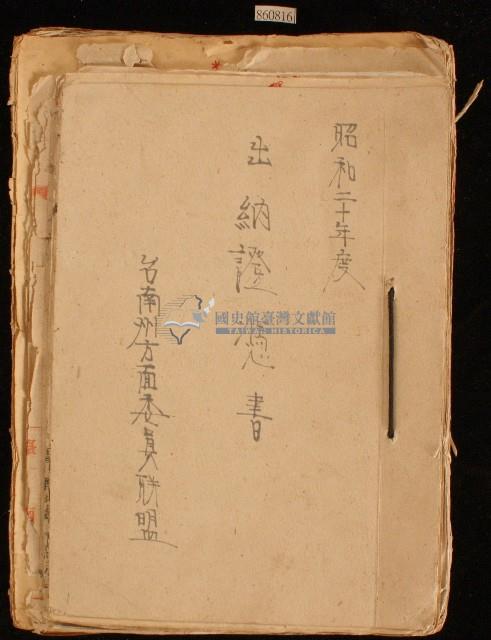 860816
昭和二十年度
出納證憑書
台南州方面委員聯盟
國史館臺灣文獻館
TAIWAN HISTORICA